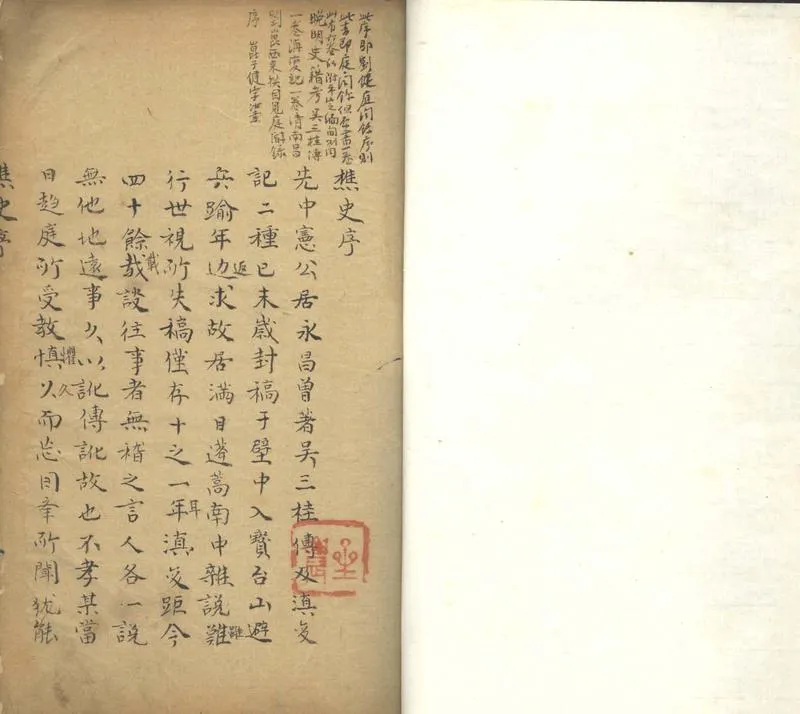 此序即劉健庭聞錄序則
此書即庭聞錄但存第一卷
晚明史籍考吳三桂傳
一卷滇變記一卷清南昌
劉崑西來撰自見庭聞錄
序 崑子健字
樵史序
先中憲公居永昌曾著吳三桂傳及滇变
記二種已未歲封稿于壁中入寶台山避
兵踰年边求故居滿目蓬蒿南中雜說難
返
雖
行世視所失稿僅存十之一年滇变距今
耳
四十餘哉設往事者無稽之言人各一說
載
無他地遠事久以訛傳訛故也不孝某當
日趋庭所受教慎久而忘因牵所聞犹能
懼久
樵史序